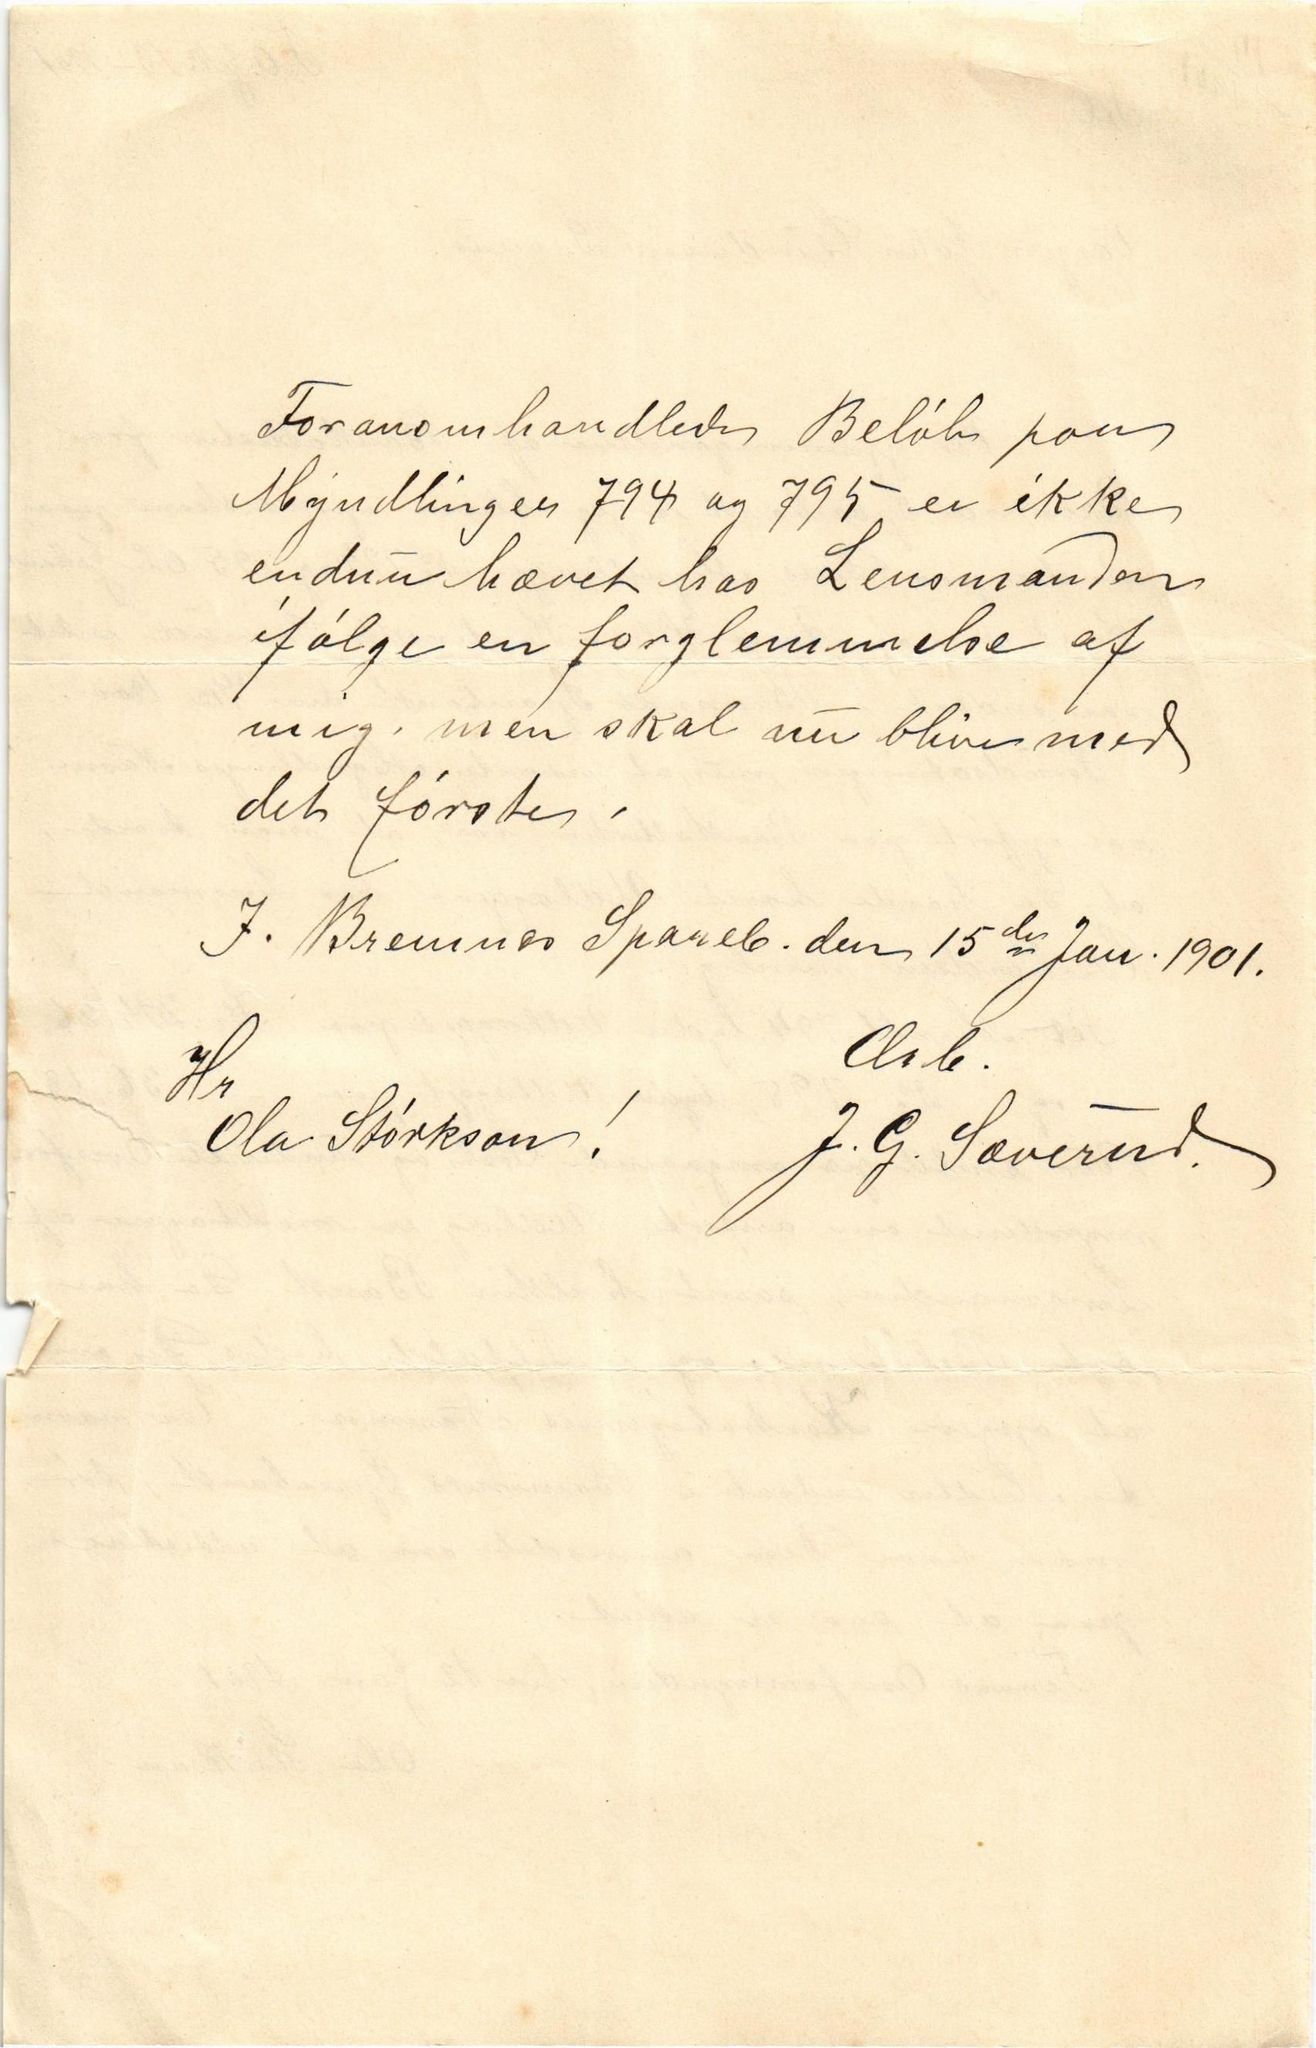 Foranomhandlede Beløb paa
Myndlinger 794 og 795 er ikke
endnu hævet hos Lensmanden
ifølge en forglemmelse af
mig. men skal nu blive med
det første.
I. Bremnes Spareb. den 15de Jan. 1901.
Hr
Ærb.
Ola Størkson!
J. G. Sæverud.